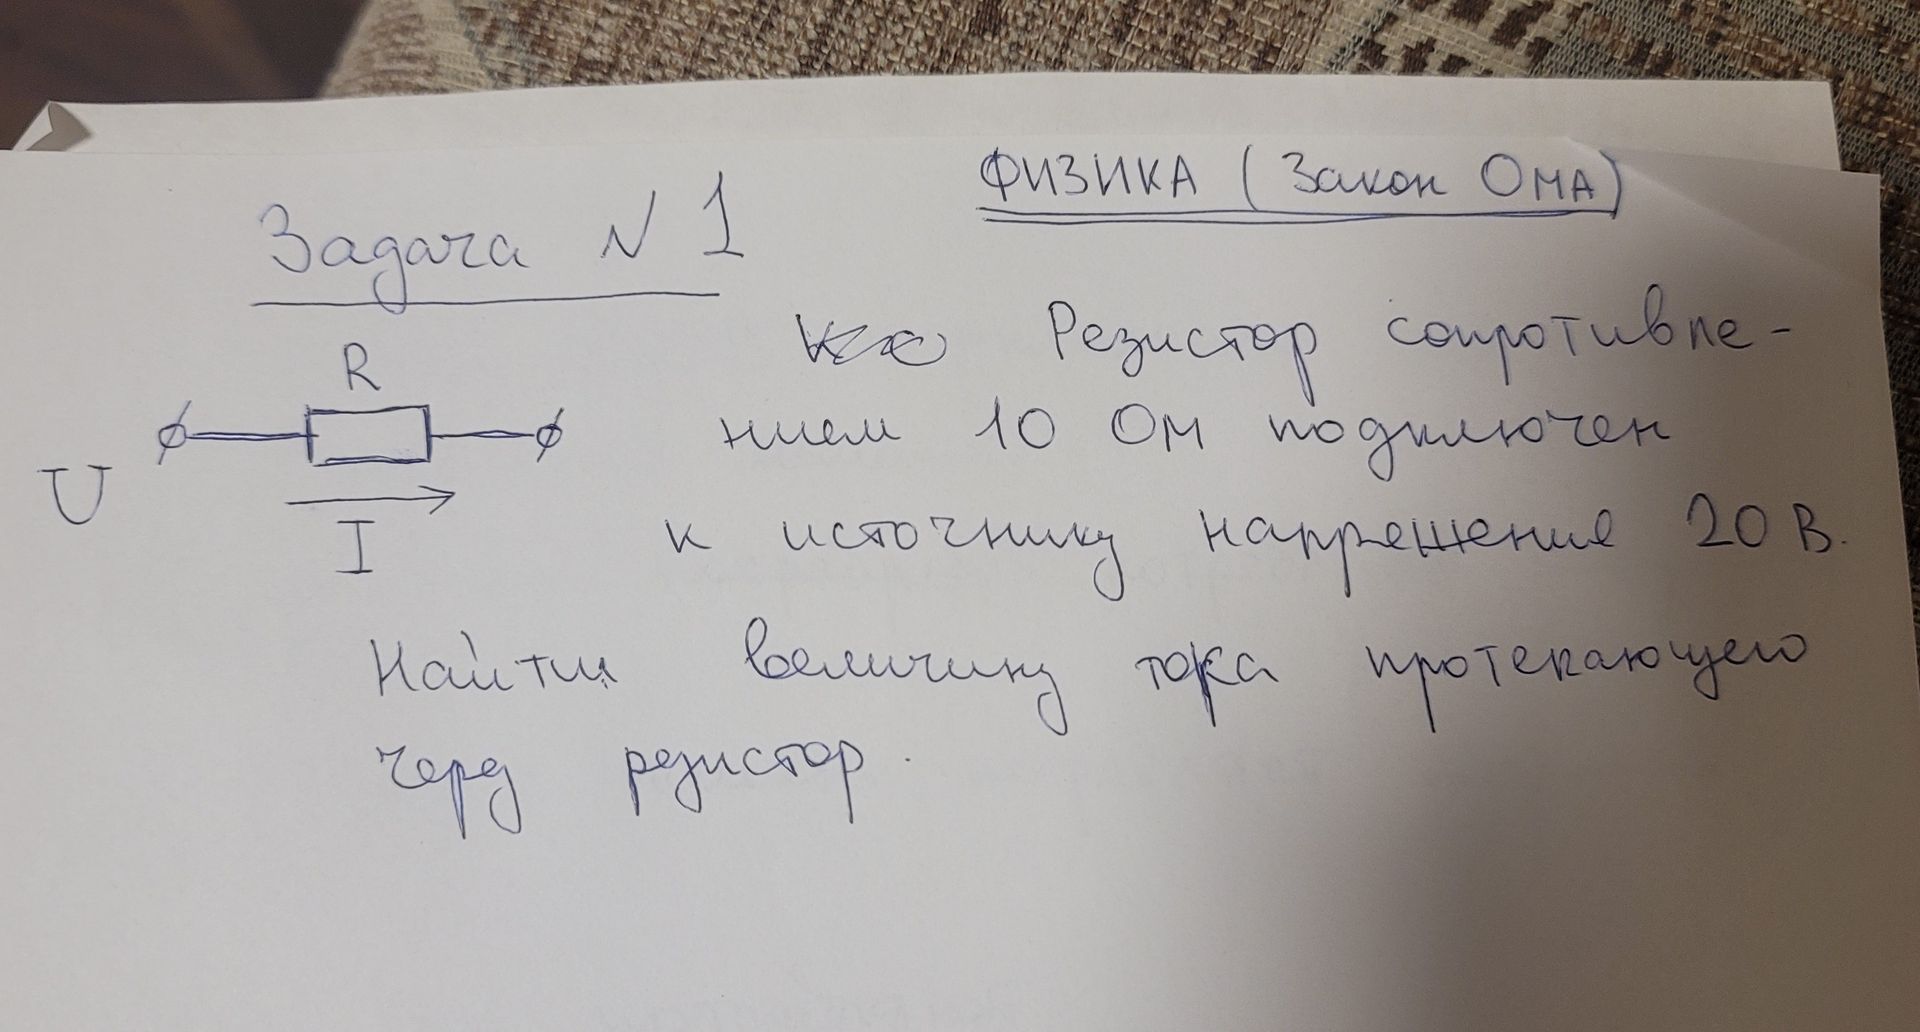 ФИЗИКА (Закон Ома)
Задача N 1
R
U
I
Резистор сопротивле-
нием 10 Ом подключен
к источнику напряжения 20 В.
Найти величину тока протекающего
через резистор.